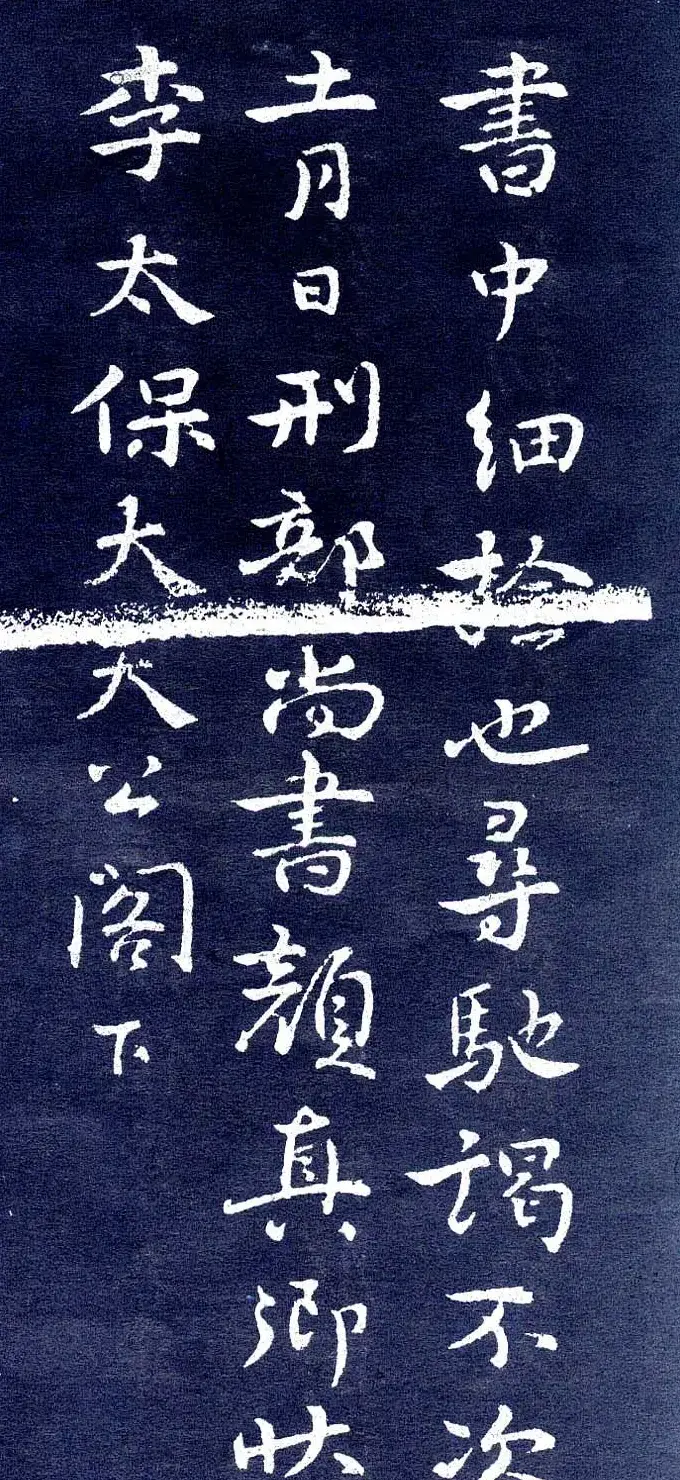 書中細捡也尋馳謁不次
十一月日刑部尚書顏真卿状
李太保大夫公閣下